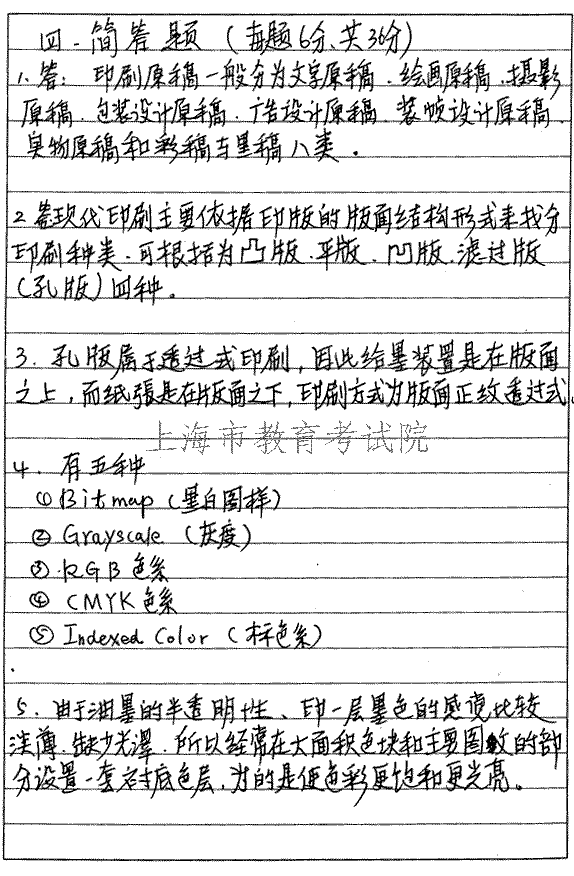 四.简答题(每题6分、共36分)
1.答:印刷原稿一般分为文字原稿.绘画原稿.摄影
原稿.包装设计原稿.广告设计原稿.装帧设计原稿.
实物原稿和彩稿与黑稿八类.
2.答现代印刷主要依据印版的版面结构形式来找分
印刷种类.可根据为凸版.平版.凹版.滤过版
(孔版)四种。
3.孔版属于透过式印刷,因此给墨装置是在版面
之上,而纸张是在版面之下,印刷方式为版面正纹透过式.
上海市教育考试院
4.有五种
①Bitmap(黑白图样)
②Grayscale(灰度)
③.RGB色系
④CMYK色系
⑤Indexed Color(标色系)
5.由于油墨的半透明性、印一层墨色的感觉比较
淡薄.缺少光泽.所以经常在大面积色块和主要图纹的部
分设置一套衬底色层.为的是使色彩更饱和更光亮。